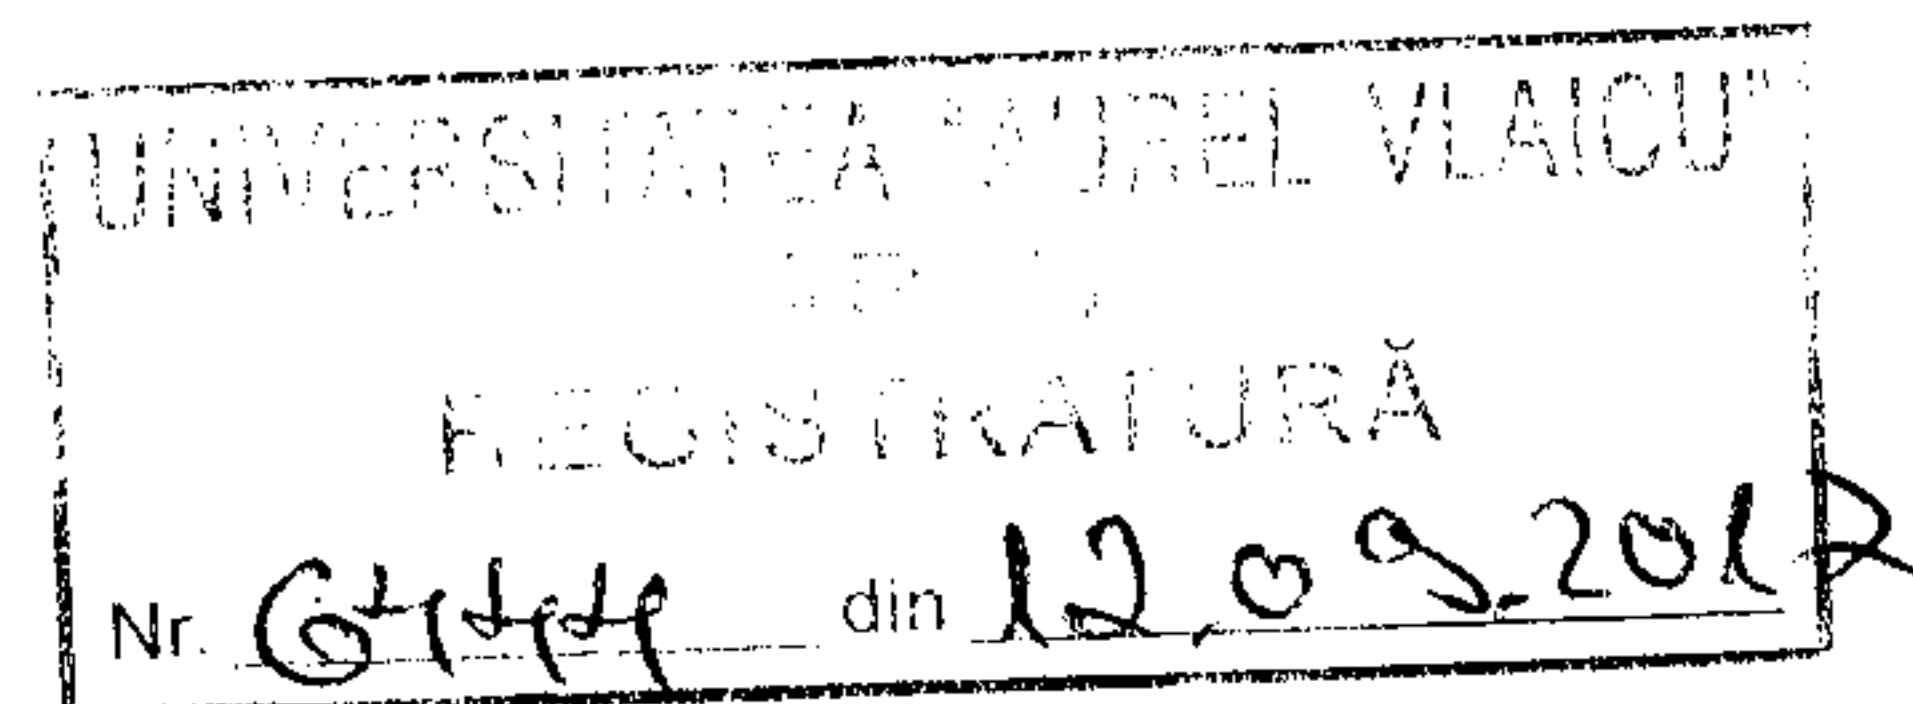 UNIVERSITATEA "AUREL VLAICU"
REGISTRATURĂ
Nr. 6444 din 12.09.2012